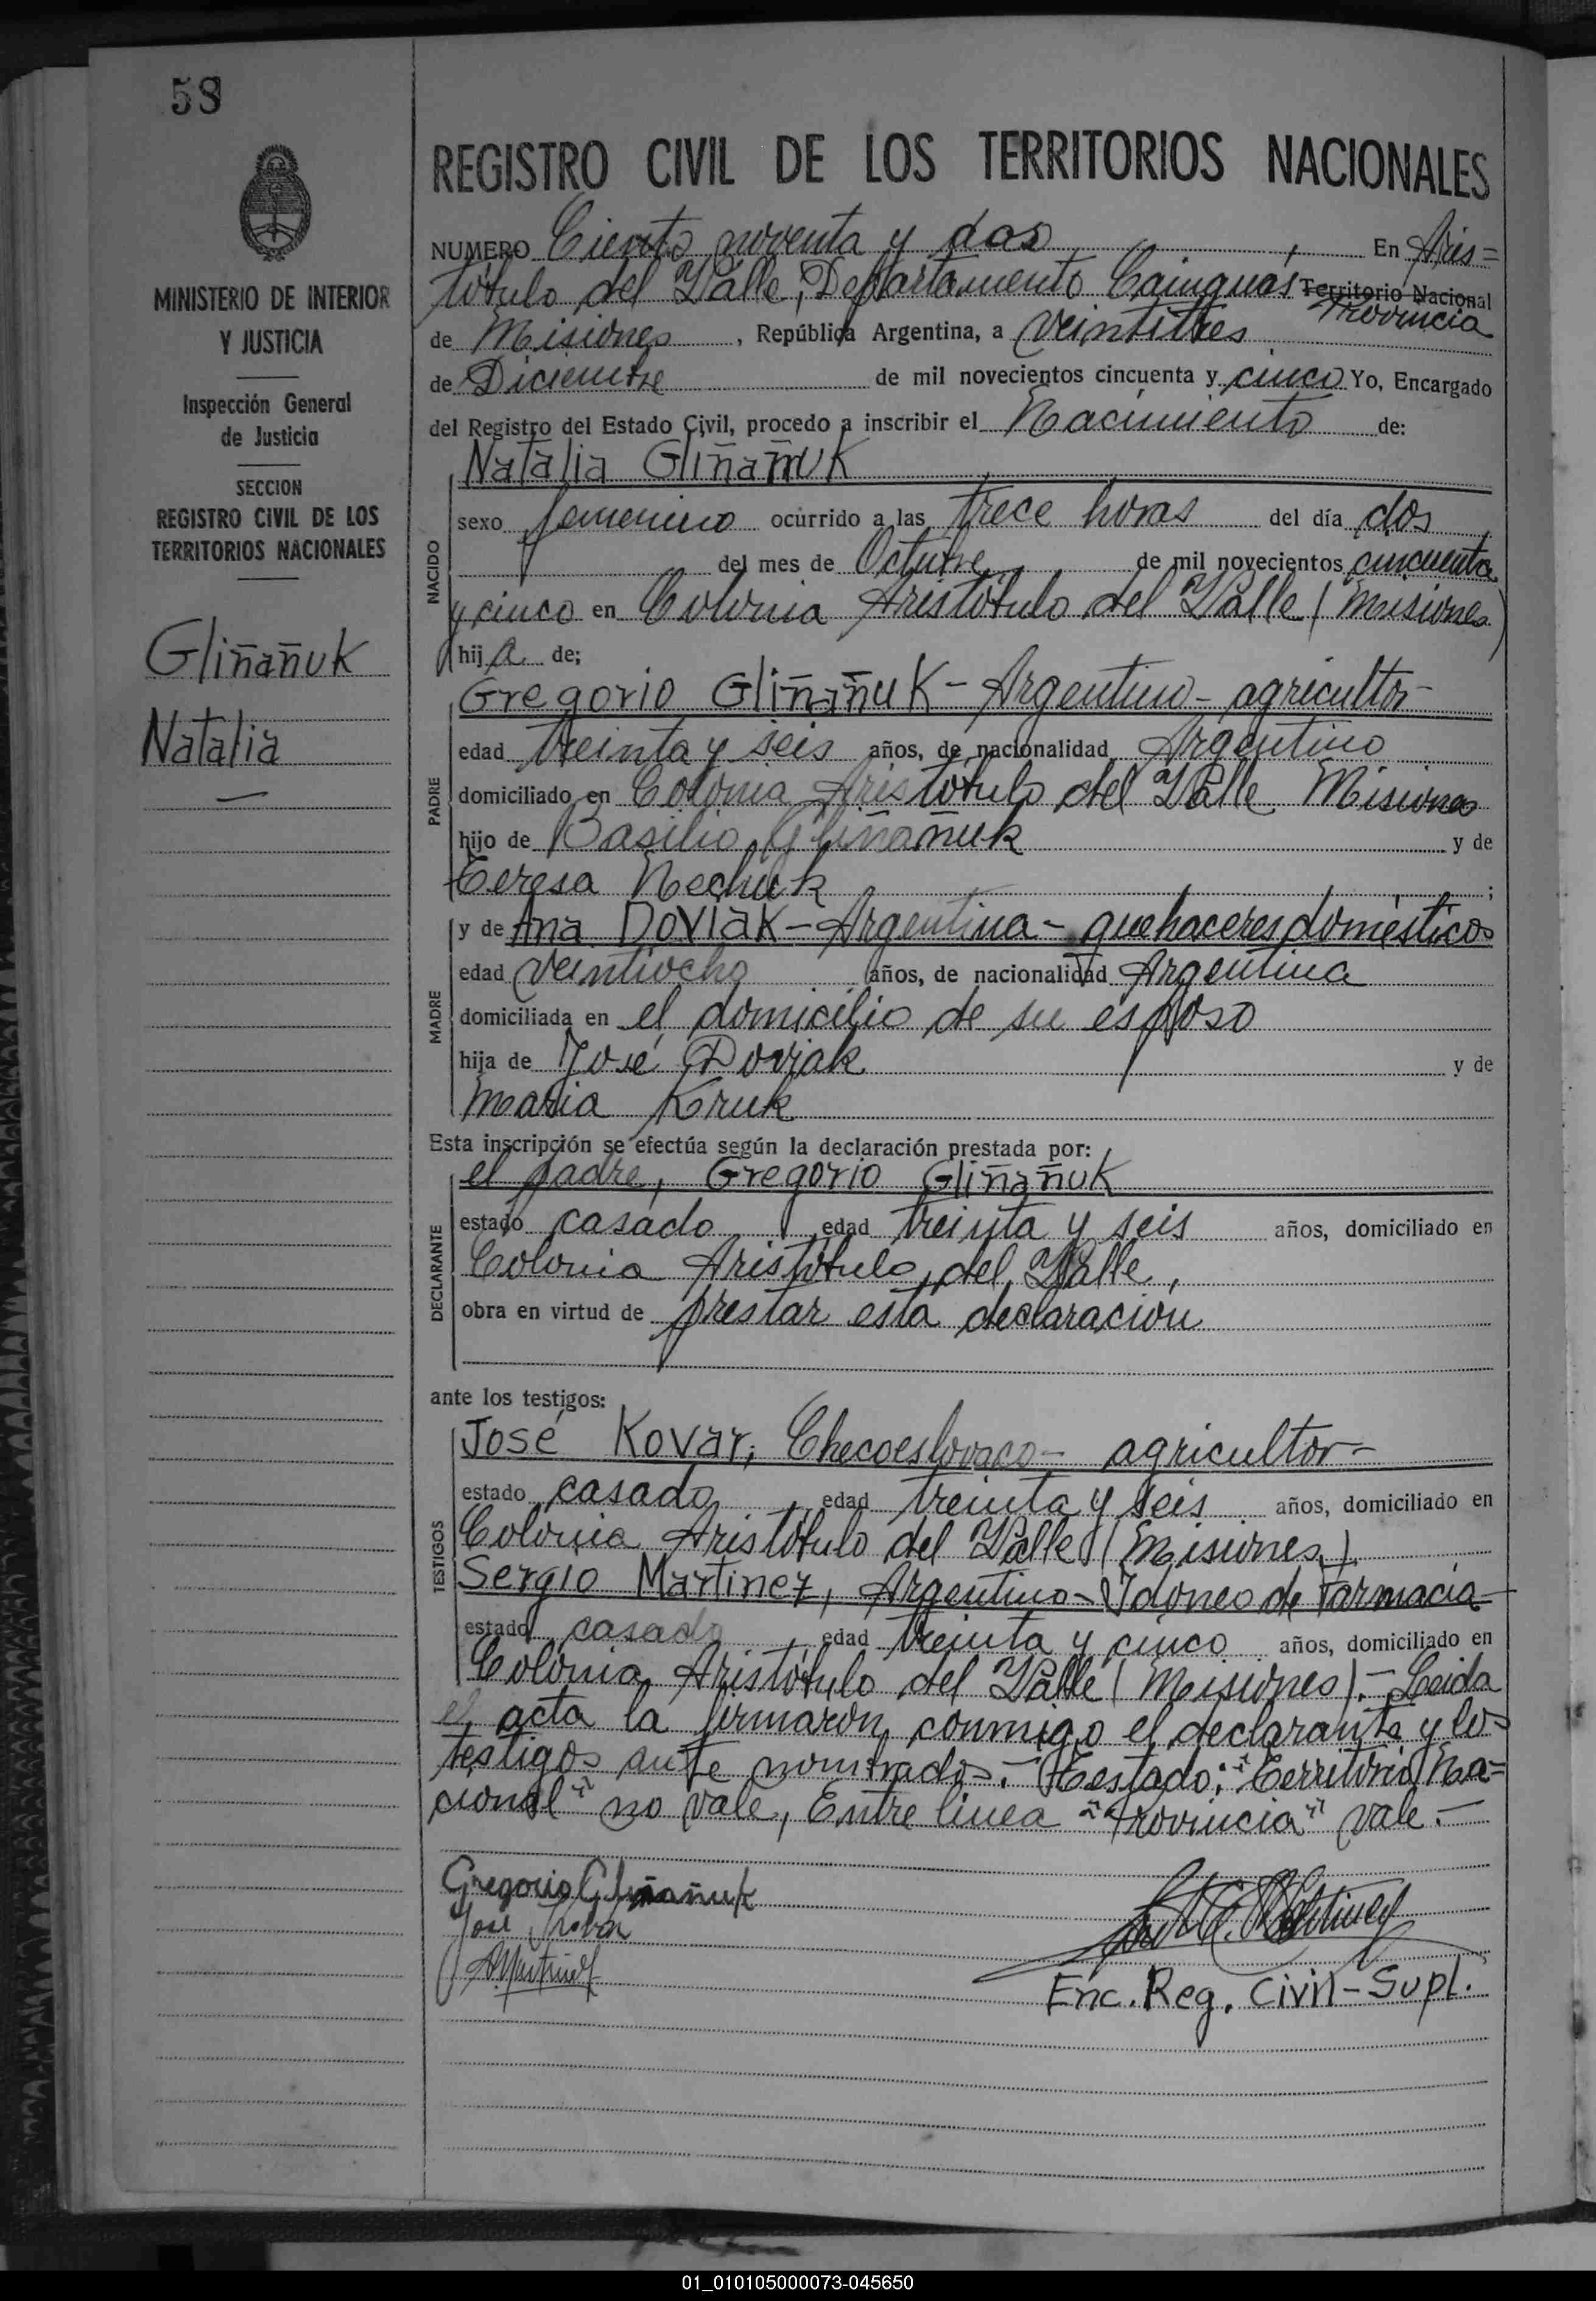 58
MINISTERIO DE INTERIOR
Y JUSTICIA
Inspección General
de Justicia
SECCION
REGISTRO CIVIL DE LOS
TERRITORIOS NACIONALES
Gliñañuk
Natalia
REGISTRO CIVIL DE LOS TERRITORIOS NACIONALES
NUMERO Ciento noventa y dos, En Aris=
tóbulo del Valle, Departamento Cainguás Territorio Nacional
Provincia
de Misiones, República Argentina, a veintitres
de Diciembre de mil novecientos cincuenta y cinco Yo, Encargado
del Registro del Estado Civil, procedo a inscribir el Nacimiento de:
NACIDO
Natalia Gliñañuk
sexo femenino ocurrido a las trece horas del día dos
del mes de Octubre de mil novecientos cincuenta
y cinco en Colonia Aristóbulo del Valle (Misiones)
hija de;
PADRE
Gregorio Gliñañuk - Argentino - agricultor -
edad treinta y seis años, de nacionalidad Argentino
domiciliado en Colonia Aristóbulo del Valle Misiones
hijo de Basilio Gliñañuk y de
Teresa Nechuk;
MADRE
y de Ana Doviak - Argentina - quehaceres domésticos
edad veintiocho años, de nacionalidad Argentina
domiciliada en el domicilio de su esposo
hija de José Doviak y de
Maria Kruk
Esta inscripción se efectúa según la declaración prestada por:
DECLARANTE
el padre, Gregorio Gliñañuk
estado casado, edad treinta y seis años, domiciliado en
Colonia Aristóbulo del Valle,
obra en virtud de prestar esta declaración
ante los testigos:
TESTIGOS
José Kovar, Checoeslovaco - agricultor -
estado casado, edad treinta y seis años, domiciliado en
Colonia Aristóbulo del Valle (Misiones).
Sergio Martinez, Argentino - Idoneo de Farmacia -
estado casado, edad treinta y cinco años, domiciliado en
Colonia Aristóbulo del Valle (Misiones).- Leida
el acta la firmaron conmigo el declarante y los
testigos ante nombrados.- Testado: "Territorio Na=
cional" no vale, Entre linea "Provincia" vale.-
Gregorio Gliñañuk
José Kovar
Enc. Reg. Civil - Supl.
01_010105000073-045650